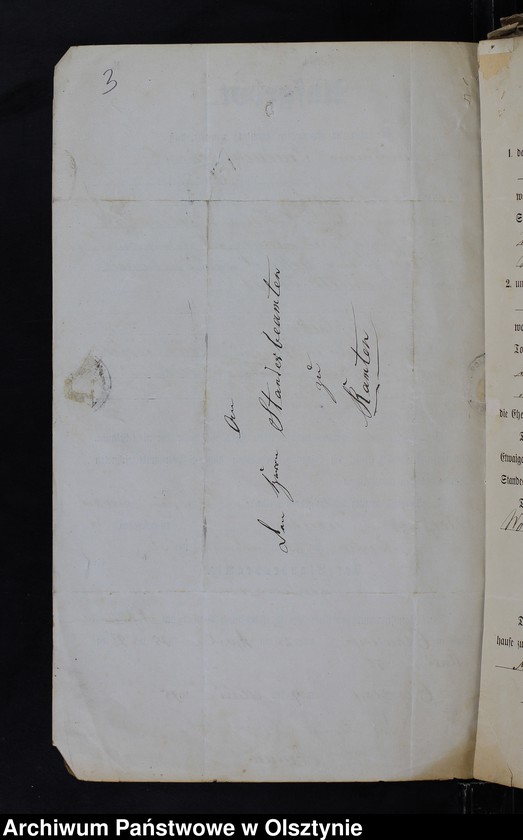 3
An
den Herrn Standesbeamten
zu
Kamten
1. de
2. un
die Ehe
Etwaige
Standes
hause zu
Archiwum Państwowe w Olsztynie